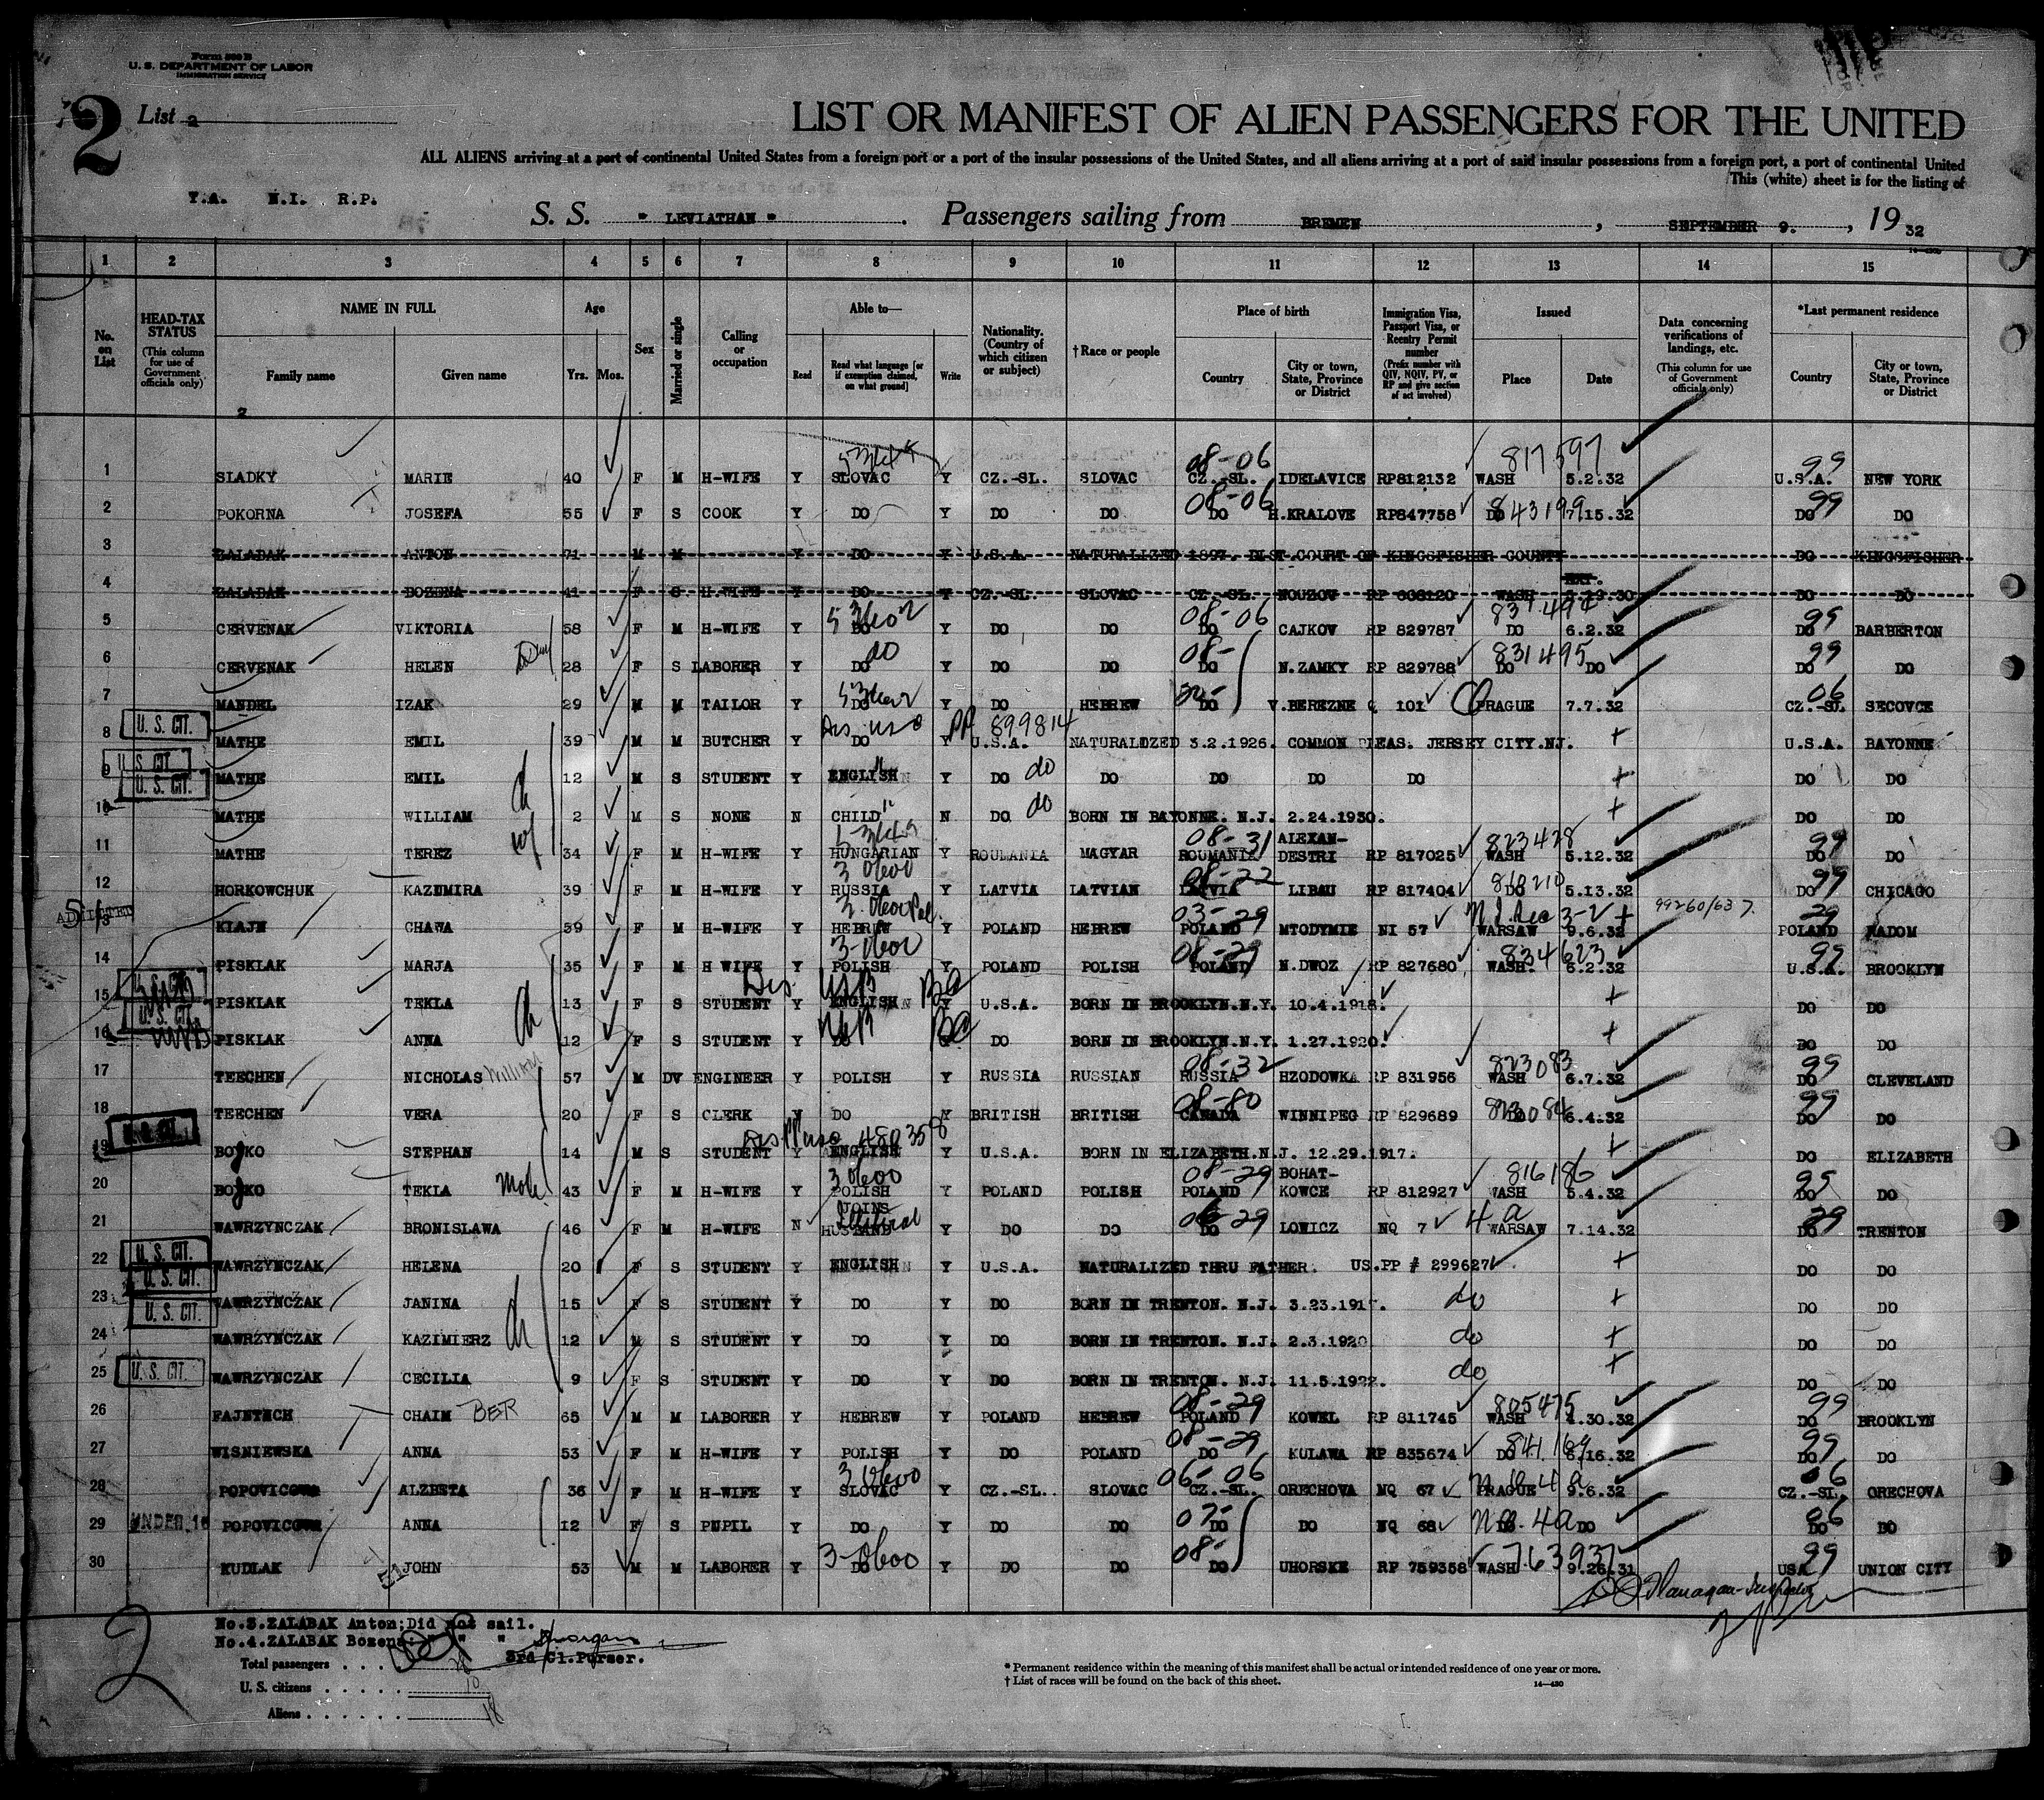 Form 500 B
U. S. DEPARTMENT OF LABOR
IMMIGRATION SERVICE
2 List 2
LIST OR MANIFEST OF ALIEN PASSENGERS FOR THE UNITED
ALL ALIENS arriving at a port of continental United States from a foreign port or a port of the insular possessions of the United States, and all aliens arriving at a port of said insular possessions from a foreign port, a port of continental United
This (white) sheet is for the listing of
T.A. N.I. R.P.
S. S. " LEVIATHAN " . Passengers sailing from BREMEN , SEPTEMBER 9. , 19 32
1 2 3 4 5 6 7 8 9 10 11 12 13 14 15
No. on List
HEAD-TAX STATUS (This column for use of Government officials only)
NAME IN FULL Family name Given name
Age Yrs. Mos.
Sex
Married or single
Calling or occupation
Able to— Read Read what language [or if exemption claimed, on what ground] Write
Nationality. (Country of which citizen or subject)
†Race or people
Place of birth Country City or town, State, Province or District
Immigration Visa, Passport Visa, or Reentry Permit number (Prefix number with QIV, NQIV, PV, or RP and give section of act involved)
Issued Place Date
Data concerning verifications of landings, etc. (This column for use of Government officials only)
*Last permanent residence Country City or town, State, Province or District
2
1 SLADKY MARIE 40 F M H-WIFE Y SLOVAC Y CZ.-SL. SLOVAC 08-06 CZ.-SL. IDELAVICE RP812132 817597 WASH 5.2.32 99 U.S.A. NEW YORK
2 POKORNA JOSEFA 55 F S COOK Y DO Y DO DO 08-06 DO H.KRALOVE RP847758 DO 843199 7.15.32 99 DO DO
3 ZALABAK ANTON 71 M M Y DO Y U.S.A. NATURALIZED 1897. DIST.COURT OF KINGSFISHER COUNTY DO KINGSFISHER
4 ZALABAK BOZENA 41 F S H.WIFE Y DO Y CZ.-SL. SLOVAC CZ.-SL. NOUZOV RP 608120 WASH EXT. 5.19.30 DO DO
5 CERVENAK VIKTORIA 58 F M H-WIFE Y DO Y DO DO 08-06 DO CAJKOV RP 829787 831494 DO 6.2.32 99 DO BARBERTON
6 CERVENAK HELEN 28 F S LABORER Y DO do Y DO DO 08- DO N.ZAMKY RP 829788 831495 DO DO 99 DO DO
7 MANDEL IZAK 29 M M TAILOR Y DO Y DO HEBREW DO V.BEREZNE Q 101 PRAGUE 7.7.32 06 CZ.-SL SECOVCE
8 U. S. CIT. MATHE EMIL 39 M M BUTCHER Y DO Y PP 899814 U.S.A. NATURALIZED 3.2.1926. COMMON PLEAS. JERSEY CITY.NJ. + U.S.A. BAYONNE
9 U. S. CIT. MATHE EMIL 12 M S STUDENT Y ENGLISH Y DO do DO DO DO DO + DO DO
10 U. S. CIT. MATHE WILLIAM ch 2 M S NONE N CHILD N DO do BORN IN BAYONNE. N.J. 2.24.1930. + DO DO
11 MATHE TEREZ wf 34 F M H-WIFE Y HUNGARIAN Y ROUMANIA MAGYAR 08-31 ROUMANIA ALEXAN-DESTRI RP 817025 823428 WASH 5.12.32 99 DO DO
12 HORKOWCHUK KAZIMIRA 39 F M H-WIFE Y RUSSIA Y LATVIA LATVIAN 08-22 LATVIA LIBAU RP 817404 810210 DO 5.13.32 99 DO CHICAGO
ADMITTED
13 KIAJN CHAWA 59 F M H-WIFE Y HEBREW Y POLAND HEBREW 03-29 POLAND MTODYMIE NI 57 WARSAW 9.6.32 + 99260/637. 29 POLAND RADOM
14 PISKLAK MARJA 35 F M H WIFE Y POLISH Y POLAND POLISH 08-29 POLAND N.DWOZ RP 827680 834623 WASH. 6.2.32 99 U.S.A. BROOKLYN
15 U. S. CIT. PISKLAK TEKLA 13 F S STUDENT Y ENGLISH USB BC Y U.S.A. BORN IN BROOKLYN.N.Y. 10.4.1918. + DO DO
16 U. S. CIT. PISKLAK ANNA ch 12 F S STUDENT Y DO USB BC Y DO BORN IN BROOKLYN.N.Y. 1.27.1920. + DO DO
17 TEECHEN NICHOLAS William 57 M DV ENGINEER Y POLISH Y RUSSIA RUSSIAN 08-32 RUSSIA HZODOWKA RP 831956 823083 WASH 6.7.32 99 DO CLEVELAND
18 TEECHEN VERA 20 F S CLERK Y DO Y BRITISH BRITISH 08-80 CANADA WINNIPEG RP 829689 823084 DO 6.4.32 99 DO DO
19 U. S. CIT. BOJKO STEPHAN 14 M S STUDENT Y ENGLISH 480358 Y U.S.A. BORN IN ELIZABETH.N.J. 12.29.1917. + DO ELIZABETH
20 BOJKO TEKLA Moth 43 F M H-WIFE Y POLISH Y POLAND POLISH 08-29 POLAND BOHAT-KOWCE RP 812927 816186 WASH 5.4.32 99 DO DO
21 WAWRZYNCZAK BRONISLAWA 46 F M H-WIFE N JOINS HUSBAND Y DO DO 06-29 DO LOWICZ NQ 7 4 a WARSAW 7.14.32 29 DO TRENTON
22 U. S. CIT. WAWRZYNCZAK HELENA 20 F S STUDENT Y ENGLISH Y U.S.A. NATURALIZED THRU FATHER. US.PP # 299627 + DO DO
23 U. S. CIT. WAWRZYNCZAK JANINA 15 F S STUDENT Y DO Y DO BORN IN TRENTON. N.J. 3.23.1917. do + DO DO
24 U. S. CIT. WAWRZYNCZAK KAZIMIERZ ch 12 M S STUDENT Y DO Y DO BORN IN TRENTON. N.J. 2.3.1920 do + DO DO
25 U. S. CIT. WAWRZYNCZAK CECILIA 9 F S STUDENT Y DO Y DO BORN IN TRENTON. N.J. 11.5.1922. do + DO DO
26 FAJNTECH CHAIM BER 65 M M LABORER Y HEBREW Y POLAND HEBREW 08-29 POLAND KOWEL RP 811745 805475 WASH 4.30.32 99 DO BROOKLYN
27 WISNIEWSKA ANNA 53 F M H-WIFE Y POLISH Y DO POLAND 08-29 DO KULAWA RP 835674 841169 DO 6.16.32 99 DO DO
28 POPOVICOVA ALZBETA 36 F M H-WIFE Y SLOVAC Y CZ.-SL. SLOVAC 06-06 CZ.-SL. ORECHOVA NQ 67 PRAGUE 9.6.32 06 CZ.-SL ORECHOVA
29 UNDER 16 POPOVICOVA ANNA 12 F S PUPIL Y DO Y DO DO 07- DO DO NQ 68 DO DO 06 DO DO
30 KUDLAK JOHN 53 M M LABORER Y DO Y DO DO 08- DO UHORSKE RP 759358 WASH 763937 9.26.31 99 USA UNION CITY
2
No.3.ZALABAK Anton;Did not sail.
No.4.ZALABAK Bozena; " " "
3rd Cl.Purser.
Total passengers
U. S. citizens 10
Aliens 18
* Permanent residence within the meaning of this manifest shall be actual or intended residence of one year or more.
† List of races will be found on the back of this sheet.
14—430